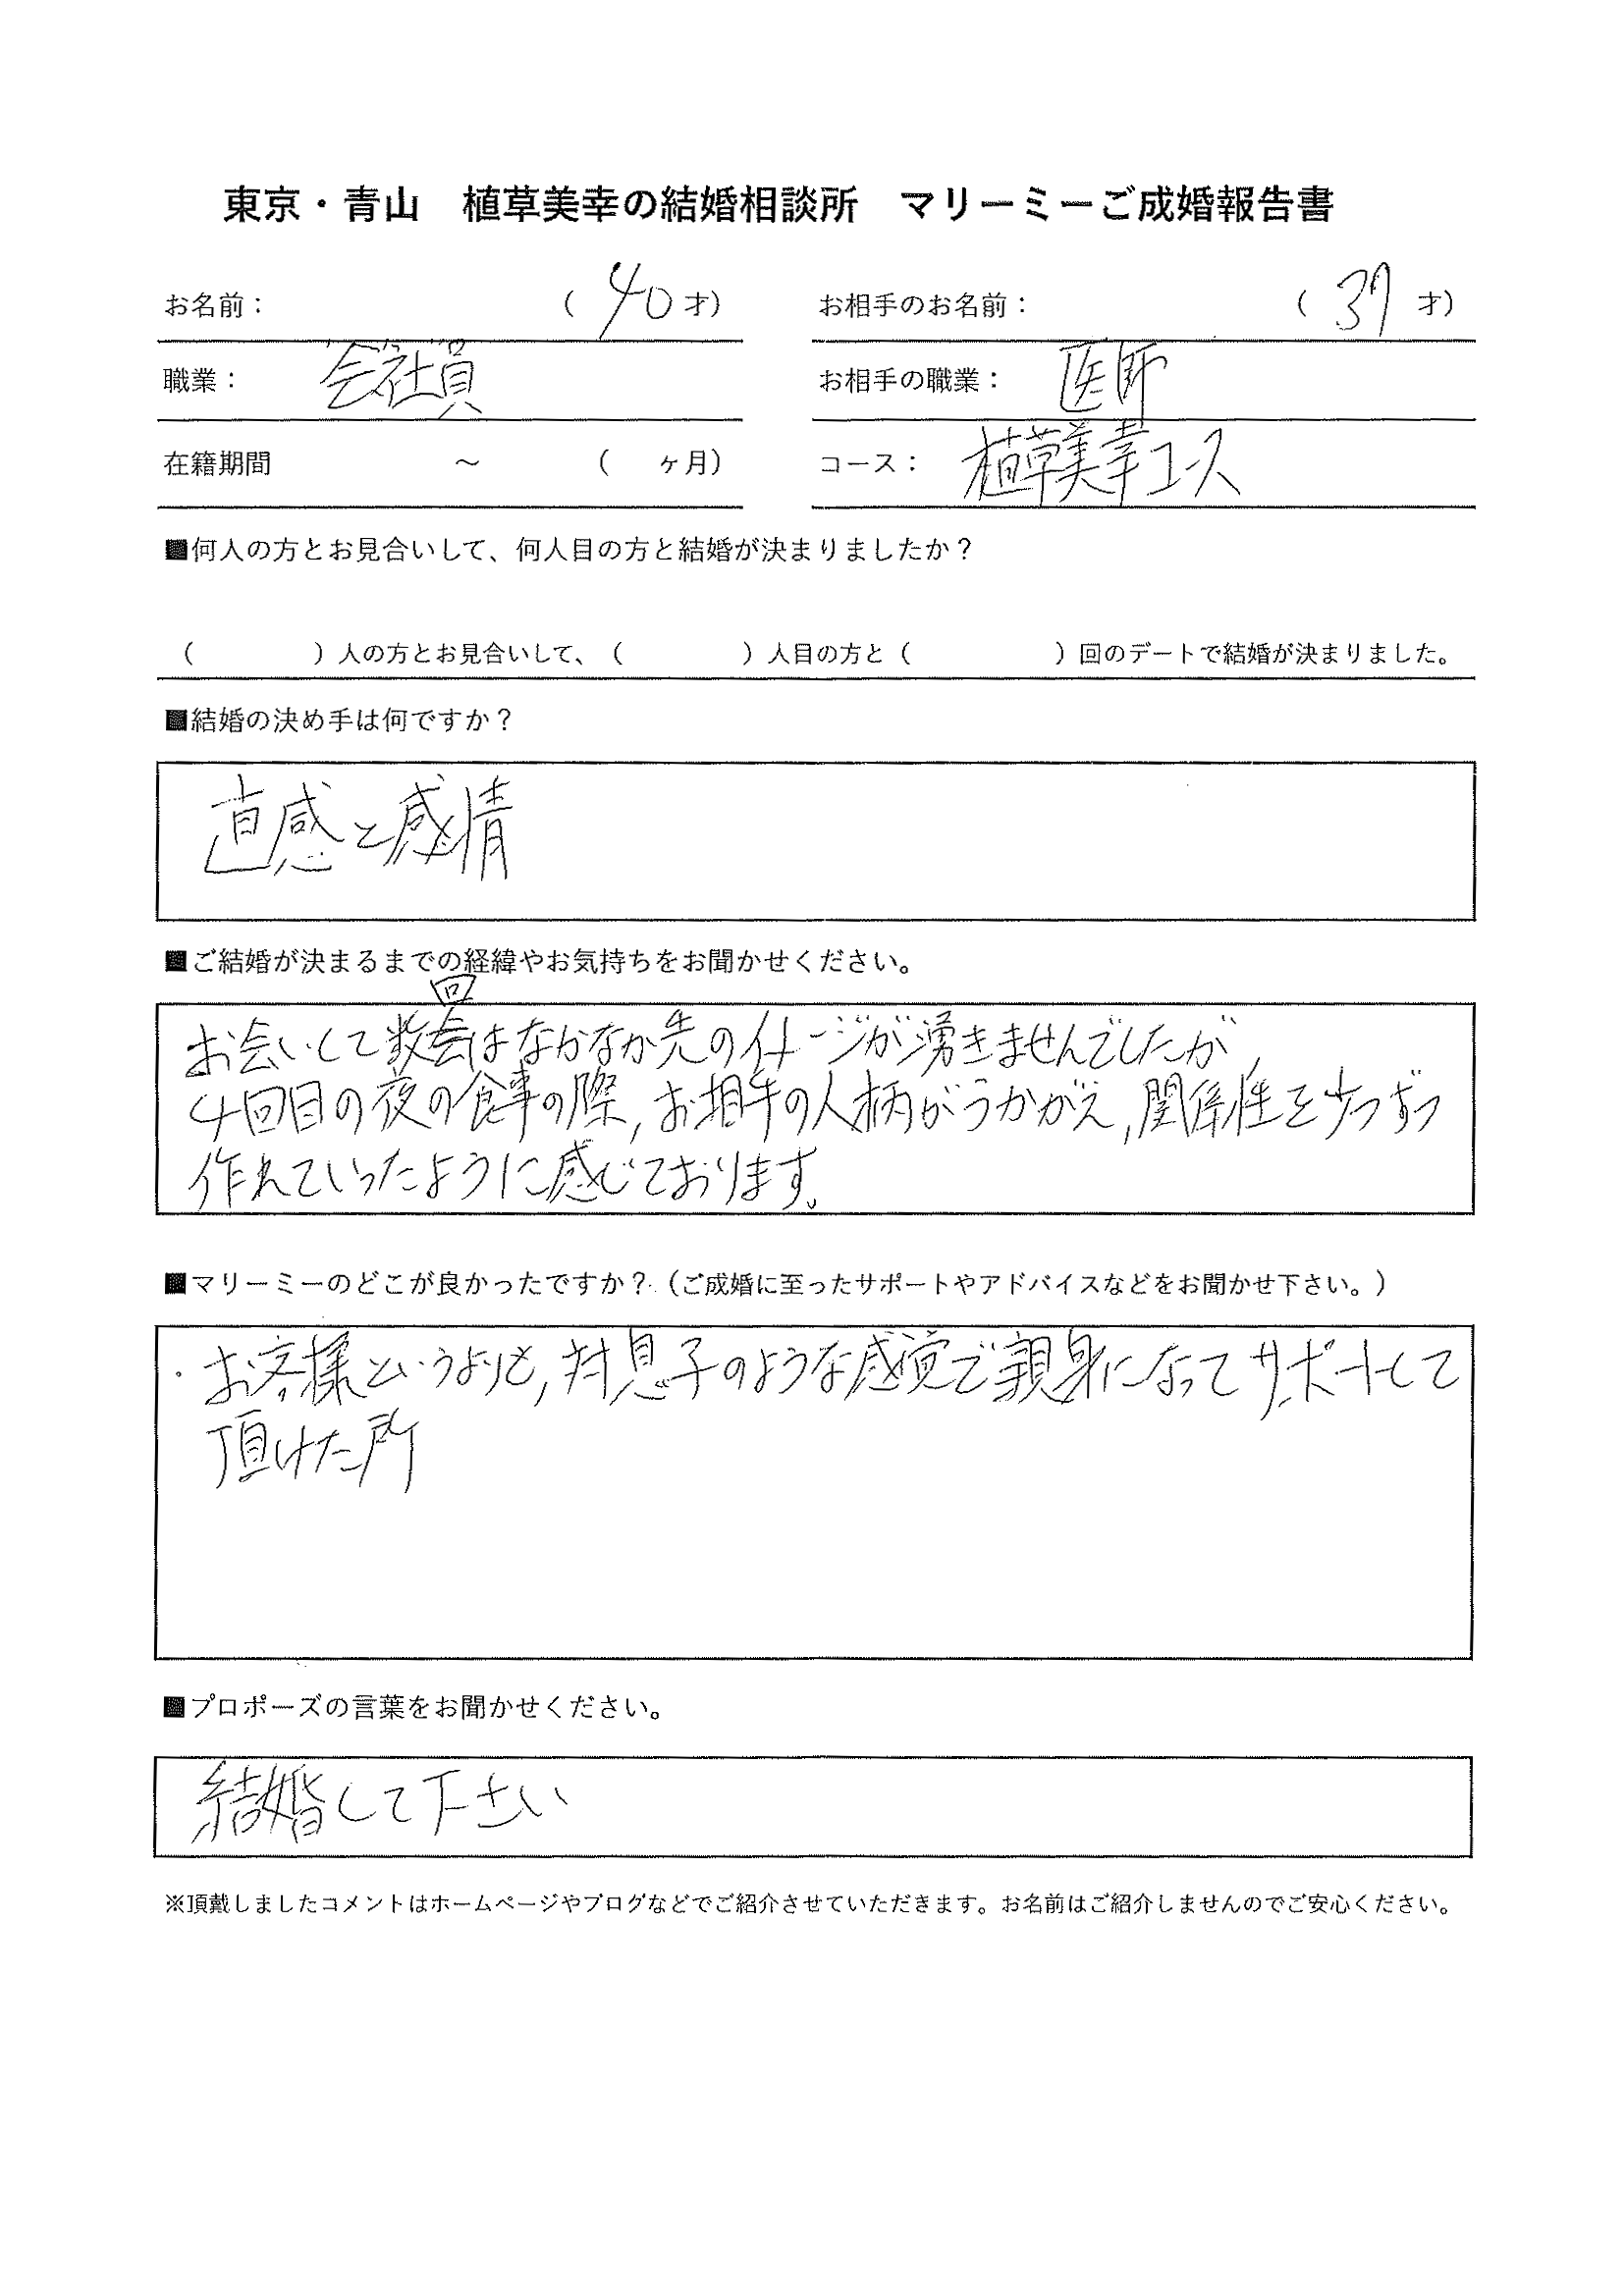 東京・青山　植草美幸の結婚相談所　マリーミーご成婚報告書
お名前：　（ 40 才）　お相手のお名前：　（ 37 才）
職業：　会社員　お相手の職業：　医師
在籍期間　～　（　ヶ月）　コース：　植草美幸コース
■何人の方とお見合いして、何人目の方と結婚が決まりましたか？
（　）人の方とお見合いして、（　）人目の方と（　）回のデートで結婚が決まりました。
■結婚の決め手は何ですか？
直感と感情
■ご結婚が決まるまでの経緯やお気持ちをお聞かせください。
お会いして数回はなかなか先のイメージが湧きませんでしたが,
4回目の夜の食事の際, お相手の人柄がうかがえ, 関係性を少つずつ
作れていったように感じております。
■マリーミーのどこが良かったですか？（ご成婚に至ったサポートやアドバイスなどをお聞かせ下さい。）
・お客様というよりも, 対息子のような感覚で親身になってサポートして
頂けた所
■プロポーズの言葉をお聞かせください。
結婚して下さい
※頂戴しましたコメントはホームページやブログなどでご紹介させていただきます。お名前はご紹介しませんのでご安心ください。